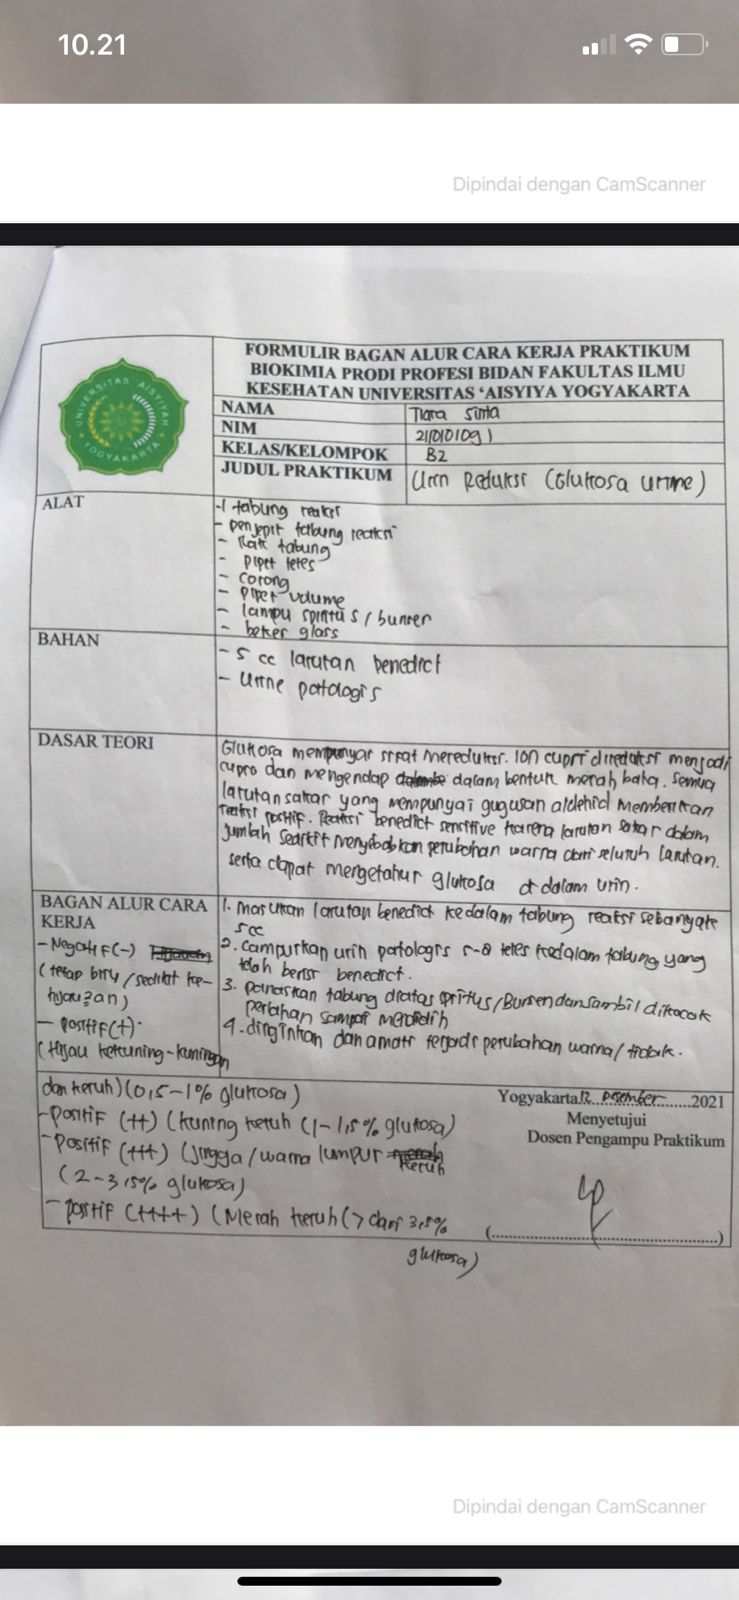 10.21
Dipindai dengan CamScanner
UNIVERSITAS 'AISYIYAH
YOGYAKARTA
FORMULIR BAGAN ALUR CARA KERJA PRAKTIKUM
BIOKIMIA PRODI PROFESI BIDAN FAKULTAS ILMU
KESEHATAN UNIVERSITAS 'AISYIYA YOGYAKARTA
NAMA Tiara Sinta
NIM 2110101091
KELAS/KELOMPOK B2
JUDUL PRAKTIKUM Urin Reduksi (Glukosa urine)
ALAT
- tabung reaksi
- penjepit tabung reaksi
- Rak tabung
- pipet tetes
- corong
- Pipet volume
- lampu spirtus / bunsen
- beker glass
BAHAN
- 5 cc larutan benedict
- Urine patologis
DASAR TEORI
Glukosa mempunyai sifat mereduksi. Ion cupri direduksi menjadi
cupro dan mengendap dalam bentuk merah bata. Semua
larutan sakar yang mempunyai gugusan aldehid memberikan
reaksi positif. Reaksi benedict sensitive karena larutan sakar dalam
jumlah sedikit menyebabkan perubahan warna dari seluruh larutan.
serta dapat mengetahui glukosa di dalam urin.
BAGAN ALUR CARA
KERJA
- Negatif (-)
(tetap biru / sedikit ke-
hijauan)
- positif (+)
(Hijau kekuning-kuningan
1. Masukan larutan benedict kedalam tabung reaksi sebanyak
5cc
2. Campurkan urin patologis 5-8 tetes kedalam tabung yang
telah berisi benedict.
3. panaskan tabung diatas spritus/Bunsen dan sambil dikocok
perlahan sampai mendidih
4. dinginkan dan amati terjadi perubahan warna / tidak.
dan keruh) (0,5-1% glukosa)
- Positif (++) (kuning keruh (1-1,5% glukosa)
- Positif (+++) (Jingga / warna lumpur keruh
(2-3,5% glukosa)
- positif (++++) (Merah keruh (> dari 3,5%
glukosa)
Yogyakarta 12 Desember 2021
Menyetujui
Dosen Pengampu Praktikum
(...........................................)
Dipindai dengan CamScanner